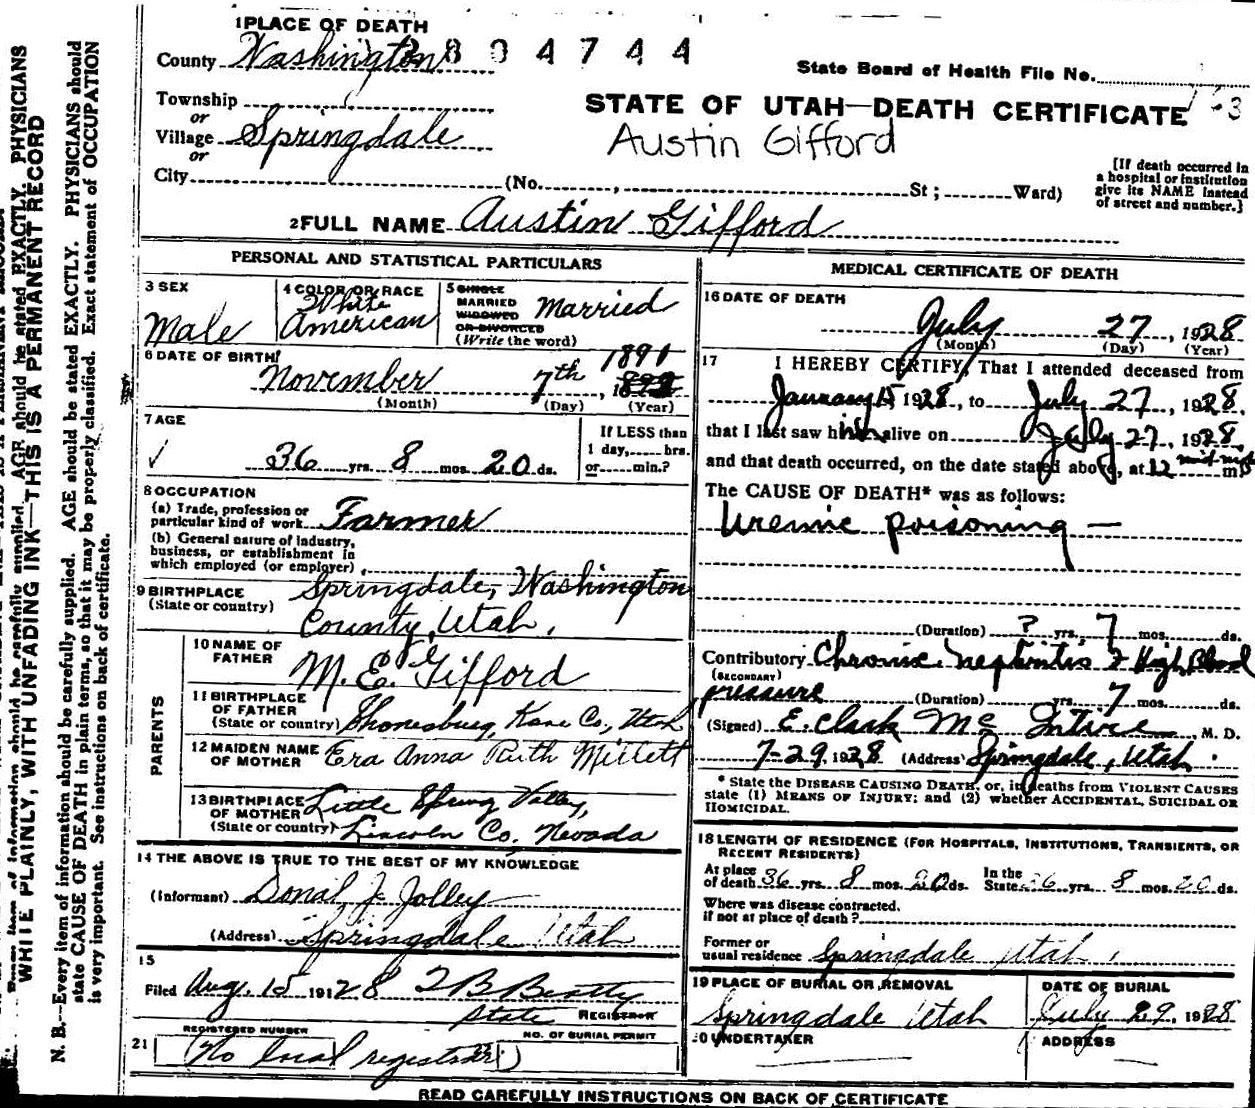 1 PLACE OF DEATH
County Washington
2 8 0 4 7 4 4
State Board of Health File No.
Township
or
Village Springdale
or
City (No. , St ; Ward)
STATE OF UTAH—DEATH CERTIFICATE
Austin Gifford
[If death occurred in
a hospital or institution
give its NAME instead
of street and number.]
2 FULL NAME Austin Gifford
PERSONAL AND STATISTICAL PARTICULARS
3 SEX
Male
4 COLOR OR RACE
White
American
5 SINGLE
MARRIED
WIDOWED
OR DIVORCED
(Write the word)
Married
6 DATE OF BIRTH
1891
November 7th , 1892
(Month) (Day) (Year)
7 AGE
36 yrs. 8 mos. 20 ds.
If LESS than
1 day, hrs.
or min.?
8 OCCUPATION
(a) Trade, profession or
particular kind of work Farmer
(b) General nature of industry,
business, or establishment in
which employed (or employer)
9 BIRTHPLACE
(State or country)
Springdale, Washington
County, Utah.
PARENTS
10 NAME OF
FATHER
M. E. Gifford
11 BIRTHPLACE
OF FATHER
(State or country) Shonesburg, Kane Co., Utah
12 MAIDEN NAME
OF MOTHER
Era Anna Ruth Millett
13 BIRTHPLACE
OF MOTHER
(State or country)
Little Spring Valley,
Lincoln Co, Nevada
14 THE ABOVE IS TRUE TO THE BEST OF MY KNOWLEDGE
(Informant) Donal J. Jolley
(Address) Springdale Utah
15
Filed Aug. 15 1928 Beatty
State REGISTRAR
21
REGISTERED NUMBER
NO. OF BURIAL PERMIT
(No local registrar)
MEDICAL CERTIFICATE OF DEATH
16 DATE OF DEATH
July 27 , 1928
(Month) (Day) (Year)
17 I HEREBY CERTIFY, That I attended deceased from
January 15 1928, to July 27, 1928.
that I last saw him alive on July 27, 1928,
and that death occurred, on the date stated above, at 12 mid-night m
The CAUSE OF DEATH* was as follows:
Uremic poisoning —
(Duration) ? yrs. 7 mos. ds.
Contributory Chronic Nephritis & High Blood
(SECONDARY)
pressure (Duration) yrs. 7 mos. ds.
(Signed) E. Clark Mc Intire, M. D.
7-29, 1928 (Address) Springdale, Utah.
* State the DISEASE CAUSING DEATH, or, in deaths from VIOLENT CAUSES
state (1) MEANS OF INJURY; and (2) whether ACCIDENTAL, SUICIDAL OR
HOMICIDAL.
18 LENGTH OF RESIDENCE (FOR HOSPITALS, INSTITUTIONS, TRANSIENTS, OR
RECENT RESIDENTS)
At place
of death 36 yrs. 8 mos. 20 ds.
In the
State 36 yrs. 8 mos. 20 ds.
Where was disease contracted,
if not at place of death ?
Former or
usual residence Springdale Utah.
19 PLACE OF BURIAL OR REMOVAL
Springdale Utah
DATE OF BURIAL
July 29, 1928
20 UNDERTAKER
ADDRESS
READ CAREFULLY INSTRUCTIONS ON BACK OF CERTIFICATE
WRITE PLAINLY, WITH UNFADING INK—THIS IS A PERMANENT RECORD
N. B.—Every item of information should be carefully supplied. AGE should be stated EXACTLY. PHYSICIANS should
state CAUSE OF DEATH in plain terms, so that it may be properly classified. Exact statement of OCCUPATION
is very important. See instructions on back of certificate.